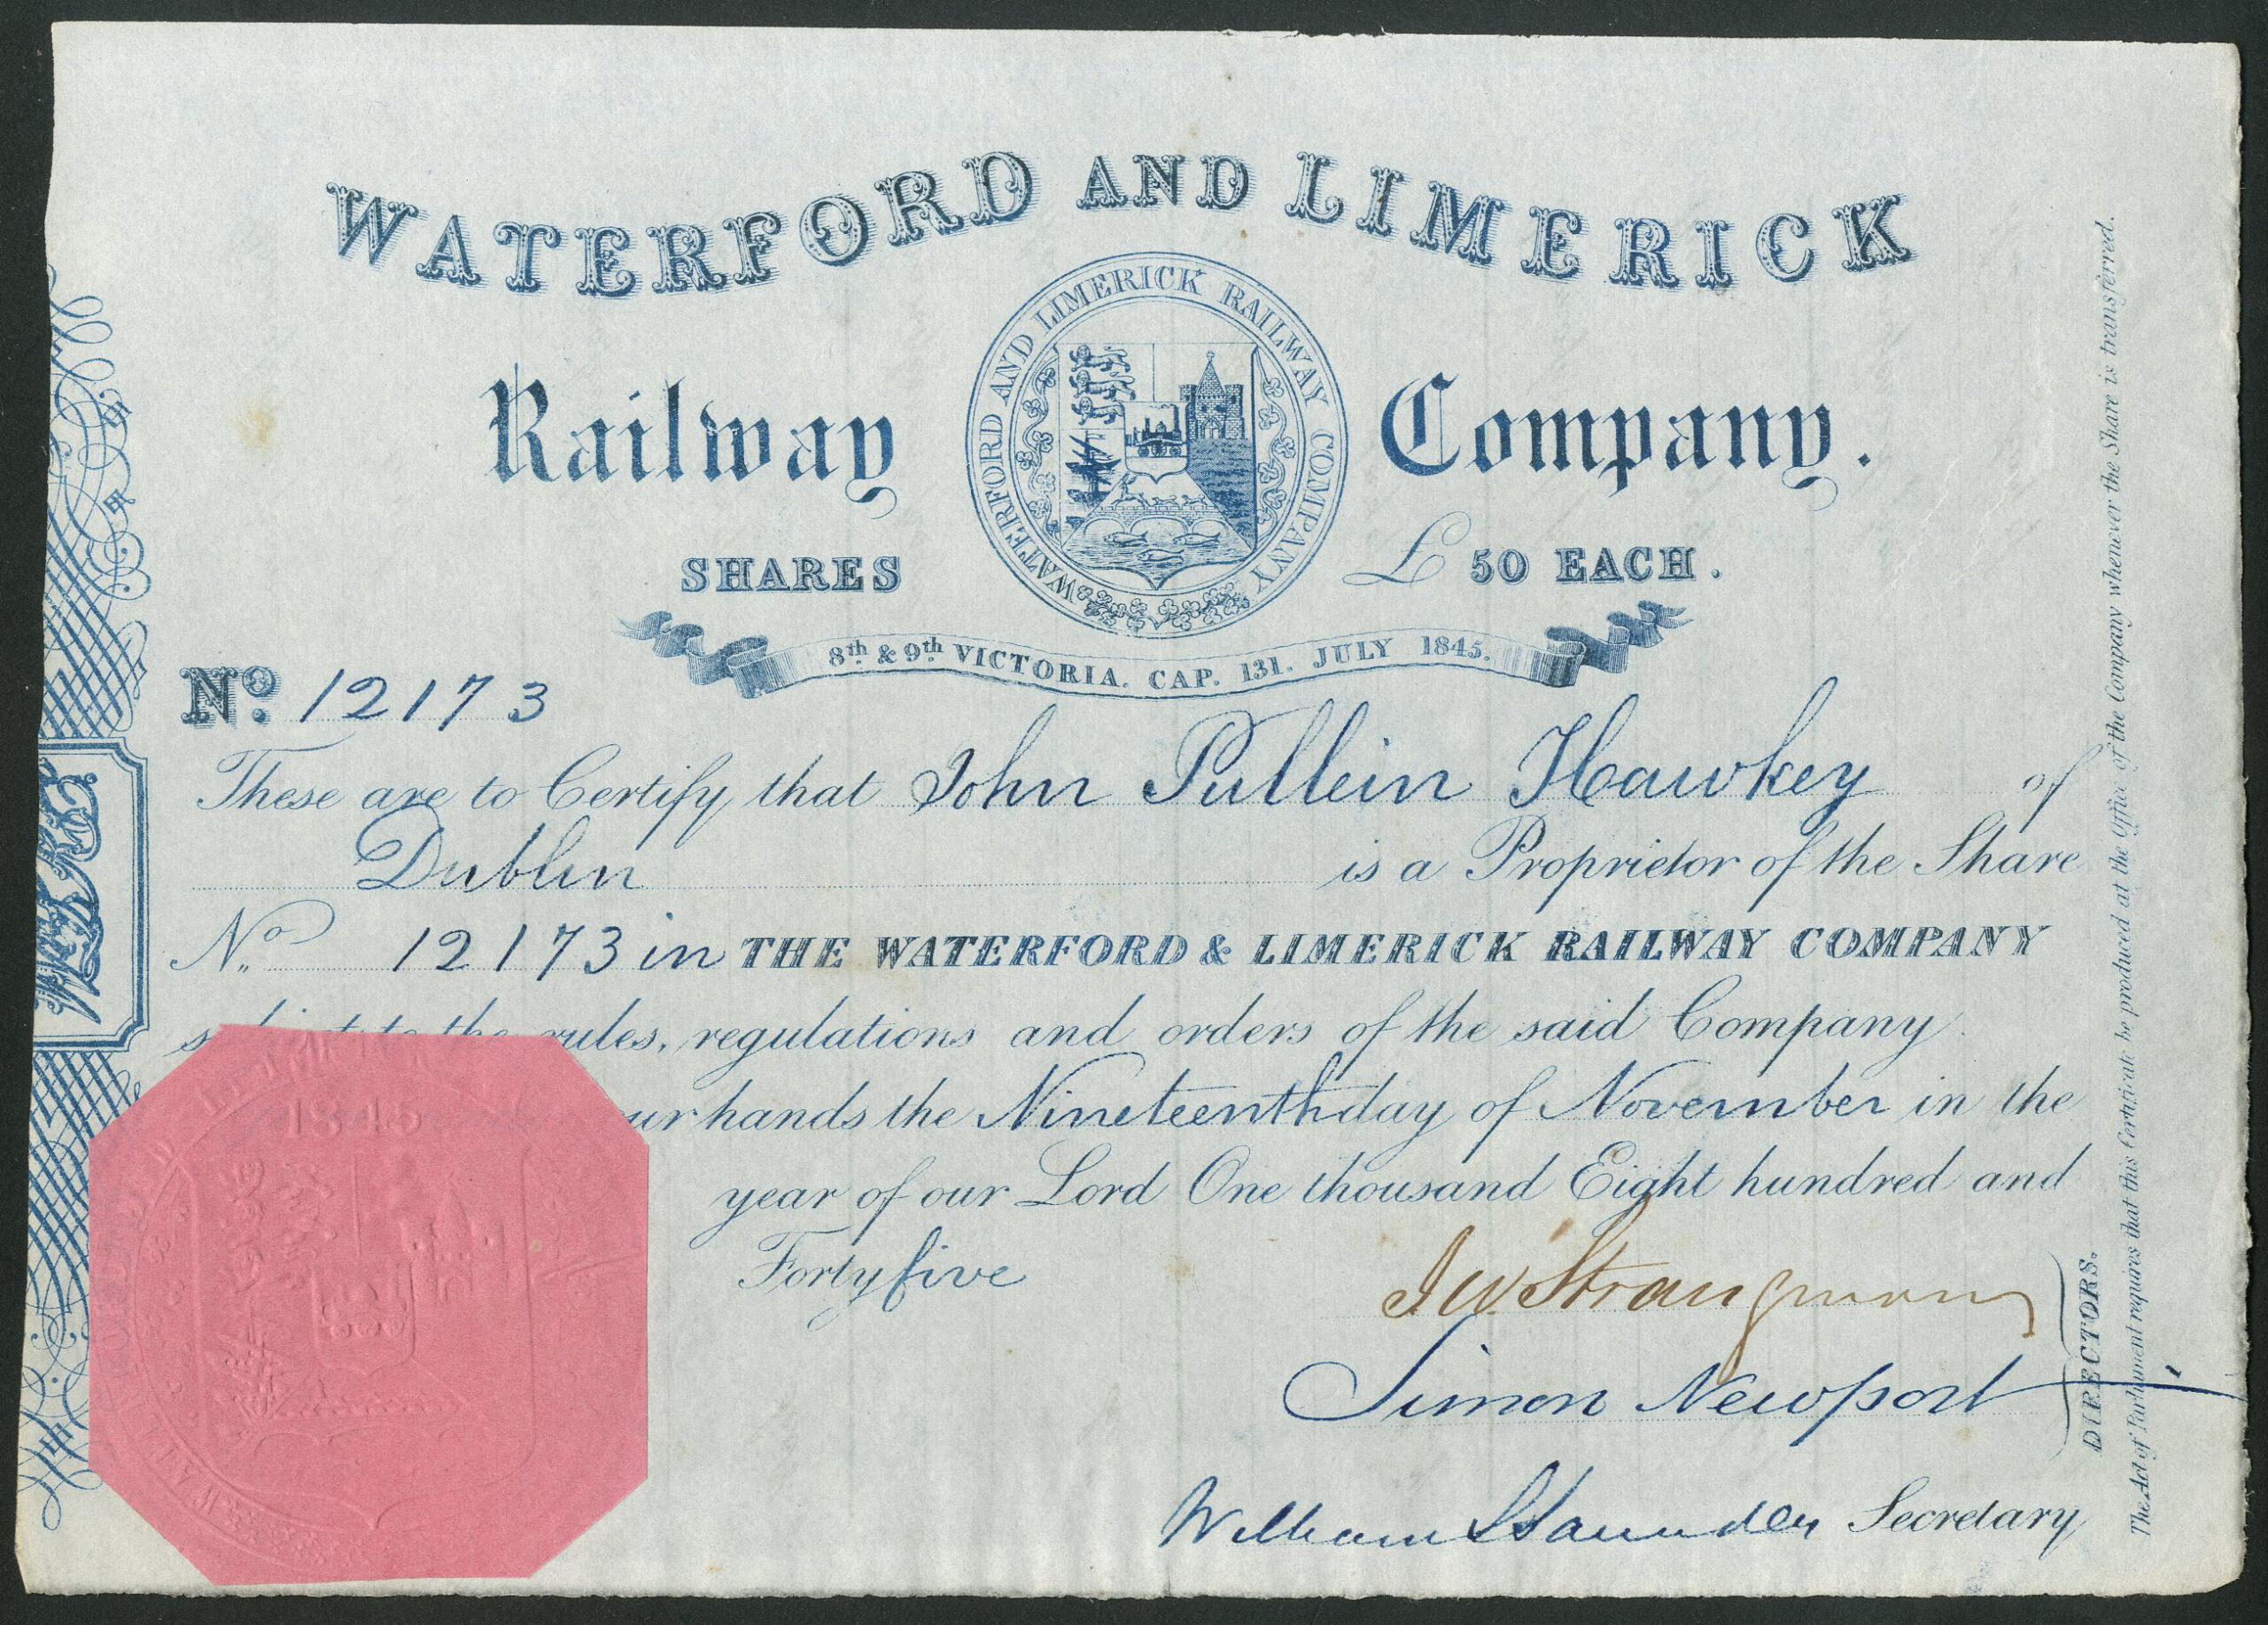 WATERFORD AND LIMERICK
Railway Company.
WATERFORD AND LIMERICK RAILWAY COMPANY
SHARES £ 50 EACH.
8th & 9th VICTORIA. CAP. 131. JULY 1845.
No. 12173
These are to Certify that John Pullein Hawkey of
Dublin is a Proprietor of the Share
No. 12173 in THE WATERFORD & LIMERICK RAILWAY COMPANY
to the rules, regulations and orders of the said Company.
our hands the Nineteenth day of November in the
year of our Lord One thousand Eight hundred and
Forty five
J W. Strangman
Simon Newport
DIRECTORS.
William Saunders Secretary
The Act of Parliament requires that this Certificate be produced at the Office of the Company whenever the Share is transferred.
1845